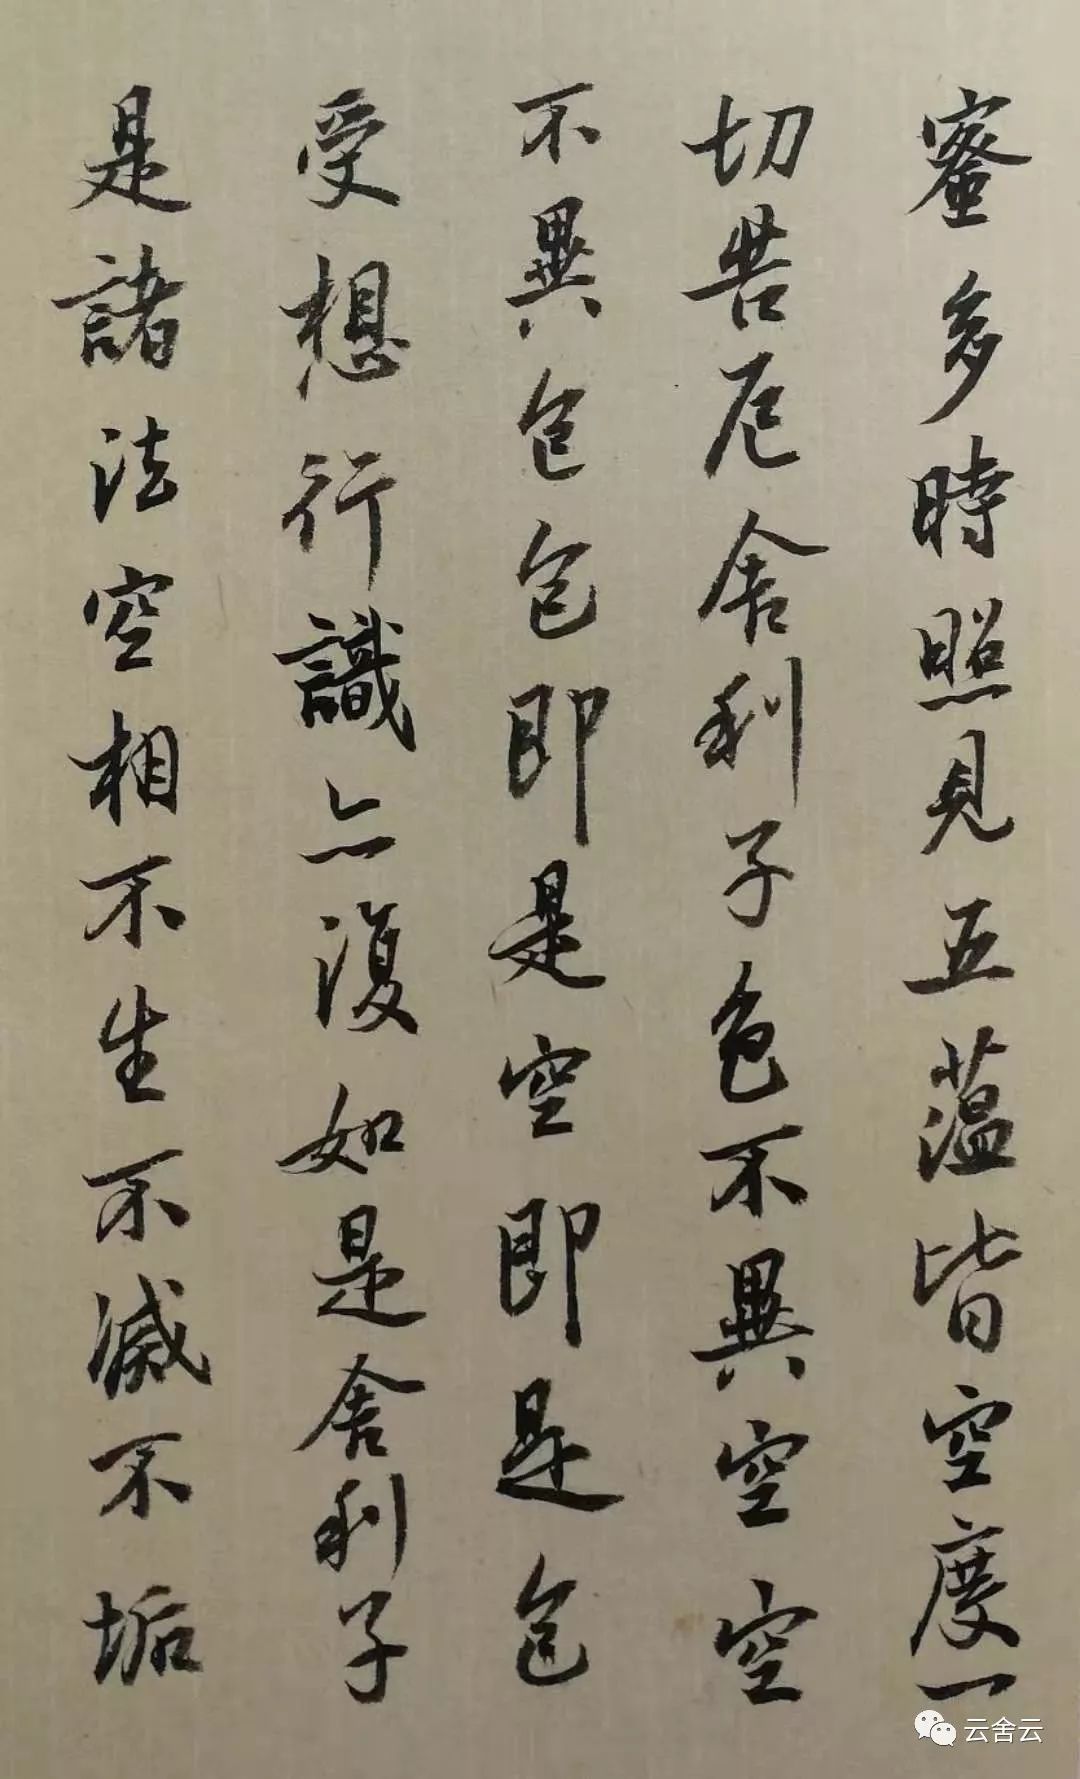 蜜多時照見五蕴皆空度一
切苦厄舍利子色不異空空
不異色色即是空空即是色
受想行識亦復如是舍利子
是諸法空相不生不滅不垢
云舍云